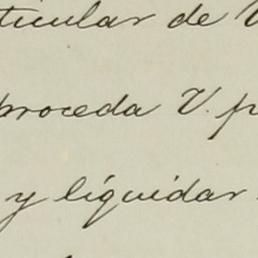 ticular de V
proceda V. p
y liquidar